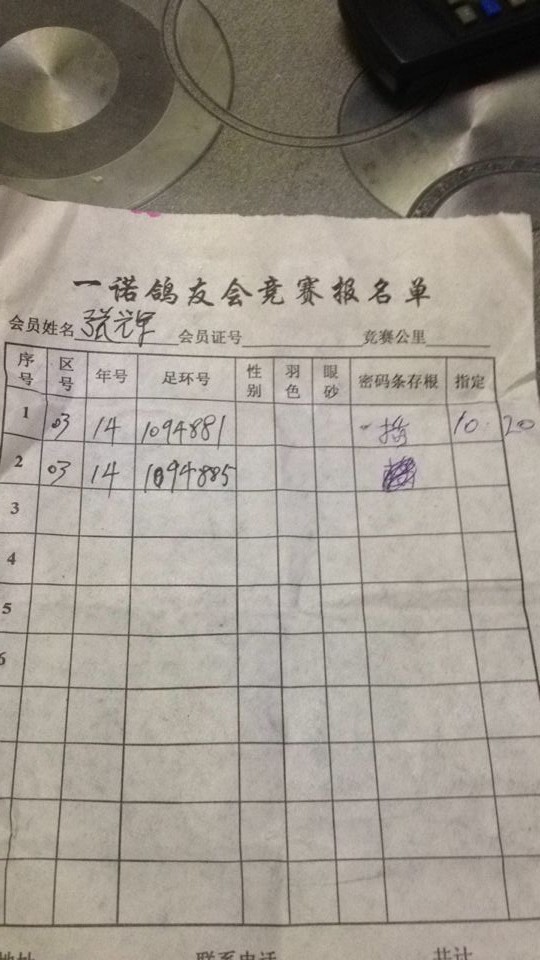 一诺鸽友会竞赛报名单
会员姓名 张光军 会员证号 竞赛公里
序号 区号 年号 足环号 性别 羽色 眼砂 密码条存根 指定
1 03 14 1094881 10 20
2 03 14 1094885
3
4
5
6
地址 联系电话 共计